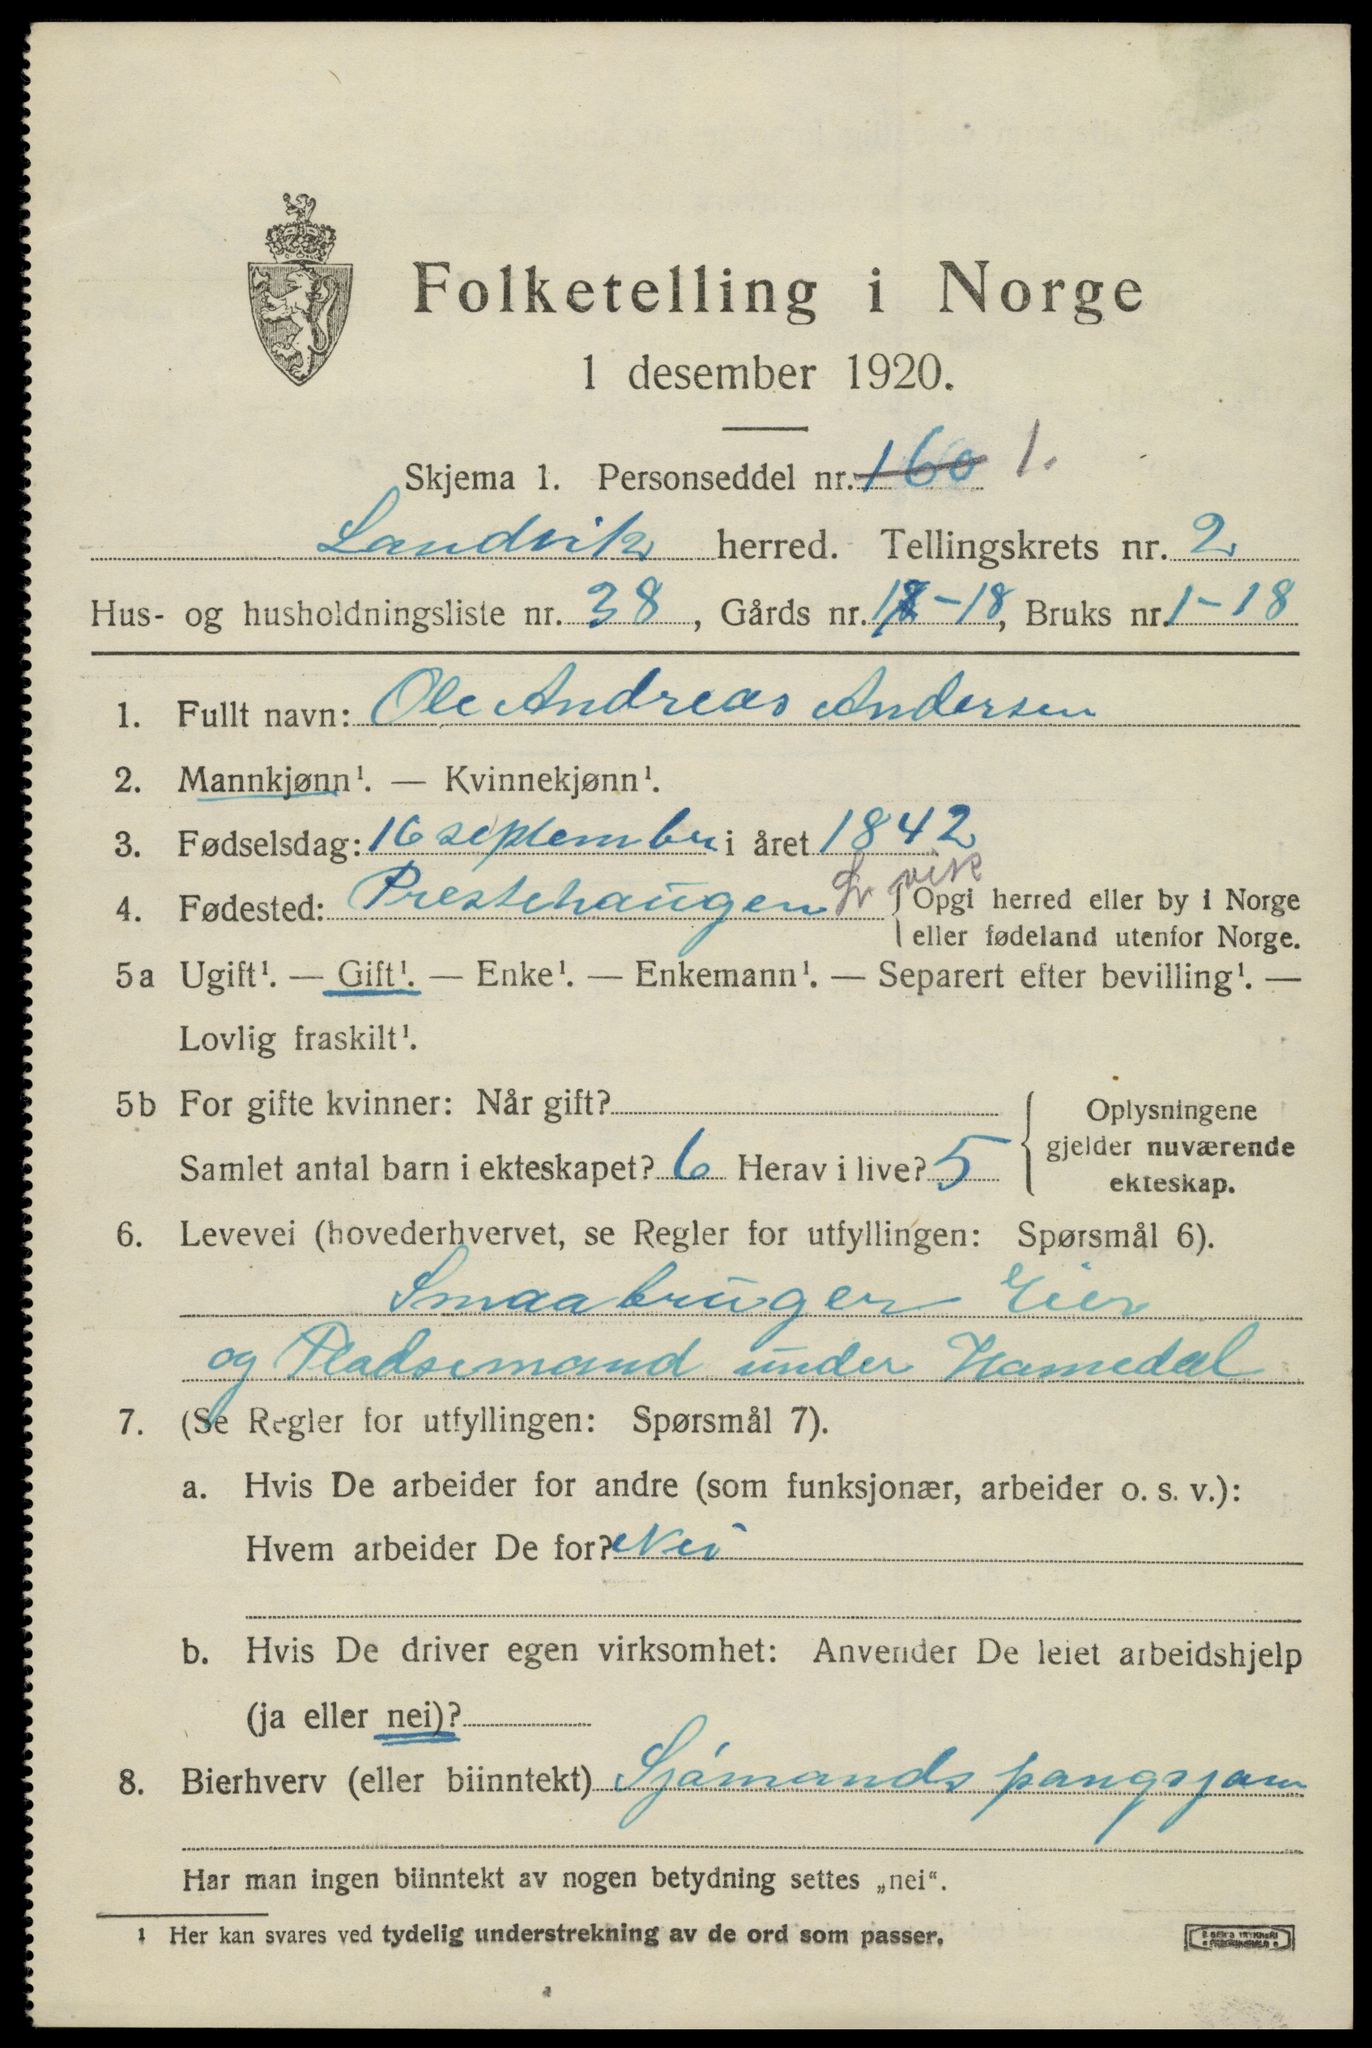 Folketelling i Norge
1 desember 1920.
Skjema 1. Personseddel nr. 160 1.
Landvik herred. Tellingskrets nr. 2
Hus- og husholdningsliste nr. 38, Gårds nr. 18-18, Bruks nr. 1-18
1. Fullt navn: Ole Andreas Andersen
2. Mannkjønn¹. — Kvinnekjønn¹.
3. Fødselsdag: 16 september i året 1842
4. Fødested: Prestehaugen L.vik { Opgi herred eller by i Norge
eller fødeland utenfor Norge.
5a Ugift¹. — Gift¹. — Enke¹. — Enkemann¹. — Separert efter bevilling¹. —
Lovlig fraskilt¹.
5b For gifte kvinner: Når gift?
Samlet antal barn i ekteskapet? 6 Herav i live? 5
{ Oplysningene
gjelder nuværende
ekteskap.
6. Levevei (hovederhvervet, se Regler for utfyllingen: Spørsmål 6).
Smaabruger Eier
og Pladsemand under Hamedal
7. (Se Regler for utfyllingen: Spørsmål 7).
a. Hvis De arbeider for andre (som funksjonær, arbeider o. s. v.):
Hvem arbeider De for? Nei
b. Hvis De driver egen virksomhet: Anvender De leiet arbeidshjelp
(ja eller nei)?
8. Bierhverv (eller biinntekt) Sjómands pangsjon
Har man ingen biinntekt av nogen betydning settes „nei“.
¹ Her kan svares ved tydelig understrekning av de ord som passer.